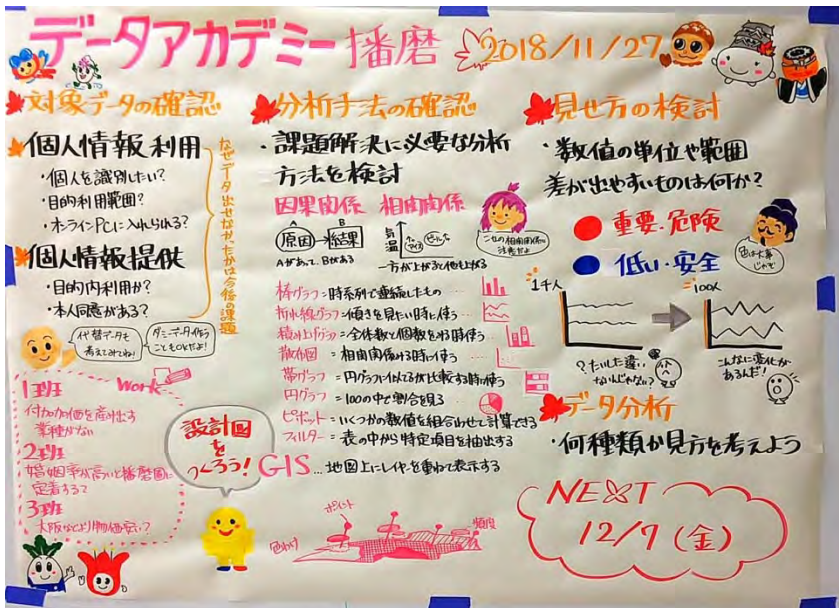 データアカデミー播磨 2018/11/27
対象データの確認
個人情報利用
・個人を識別したい?
・目的利用範囲?
・オンラインPCに入れられる?
個人情報提供
・目的内利用か?
・本人同意がある?
なぜデータ出せなかったかは今後の課題
代替データも
考えてみてね!
ダミーデータ作る
こともOKだよ!
Work
1班
付加価値を産み出す
業種がない
2班
婚姻率が高いと播磨圏に
定着するて
3班
大阪などより物価安い?
設計図
を
つくろう!
分析手法の確認
・課題解決に必要な分析
方法を検討
因果関係 相関関係
A B
原因→結果
Aがあって、Bがある
気温
アイス
ビール
一方が上がると他も上がる
ニセの相関関係に
注意だよ
棒グラフ:時系列で連続したもの
折れ線グラフ:傾きを見たい時に使う
積み上げグラフ=全体数と個数をみる時使う
散布図=相関関係みる時に使う
帯グラフ=円グラフに似てるが比較する時に使う
円グラフ=100の中で割合を見る
ピボット=いくつかの数値を組合わせて計算できる
フィルター=表の中から特定項目を抽出する
GIS...地図上にレイヤを重ねて表示する
ポイント
色わけ
頻度
見せ方の検討
・数値の単位や範囲
差が出やすいものは何か?
重要・危険
低い・安全
色は大事
じゃで
1千人
100人
?たいした違い
ないんじゃない?
こんなに変化が
あるんだ!
データ分析
・何種類か見方を考えよう
NEXT
12/7(金)